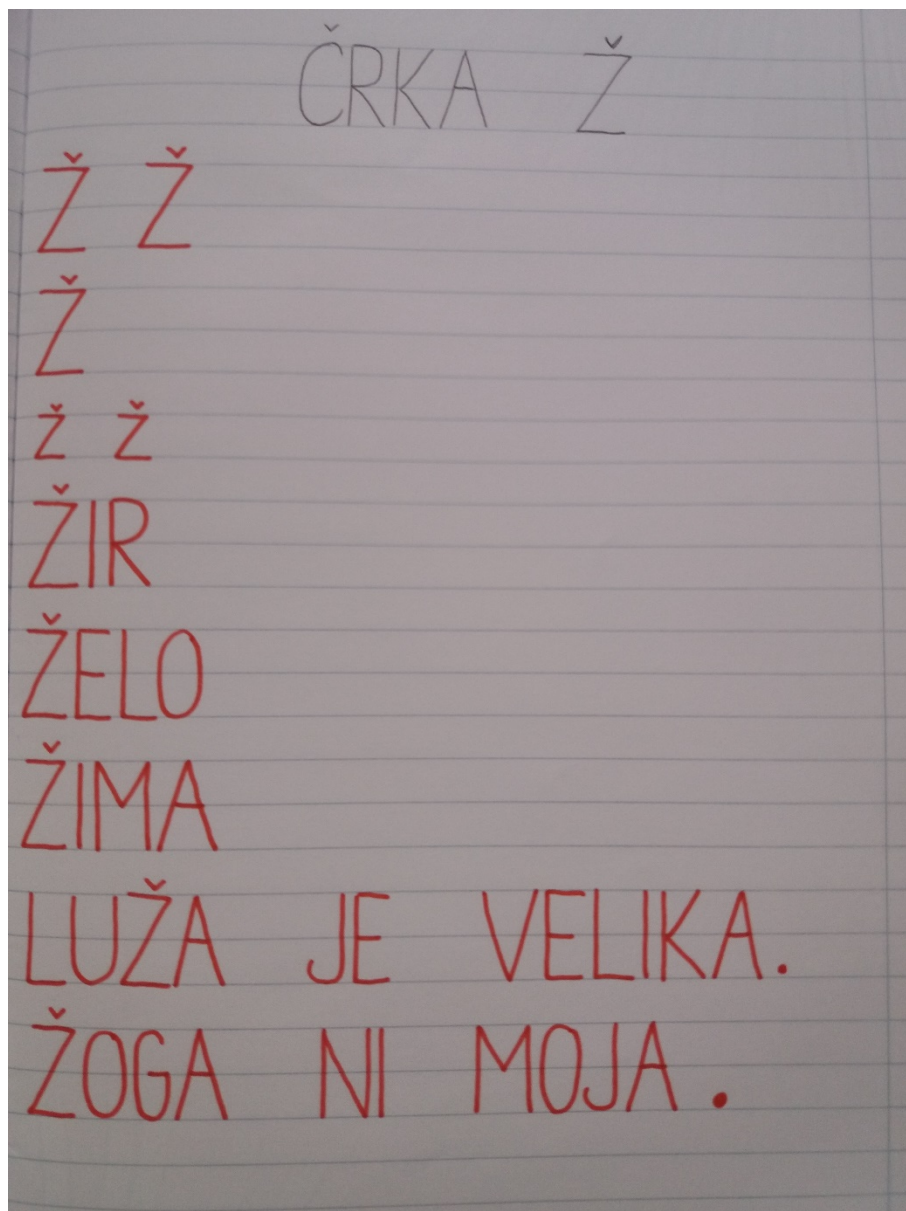 ČRKA Ž
Ž Ž
Ž
ž ž
ŽIR
ŽELO
ŽIMA
LUŽA JE VELIKA.
ŽOGA NI MOJA.